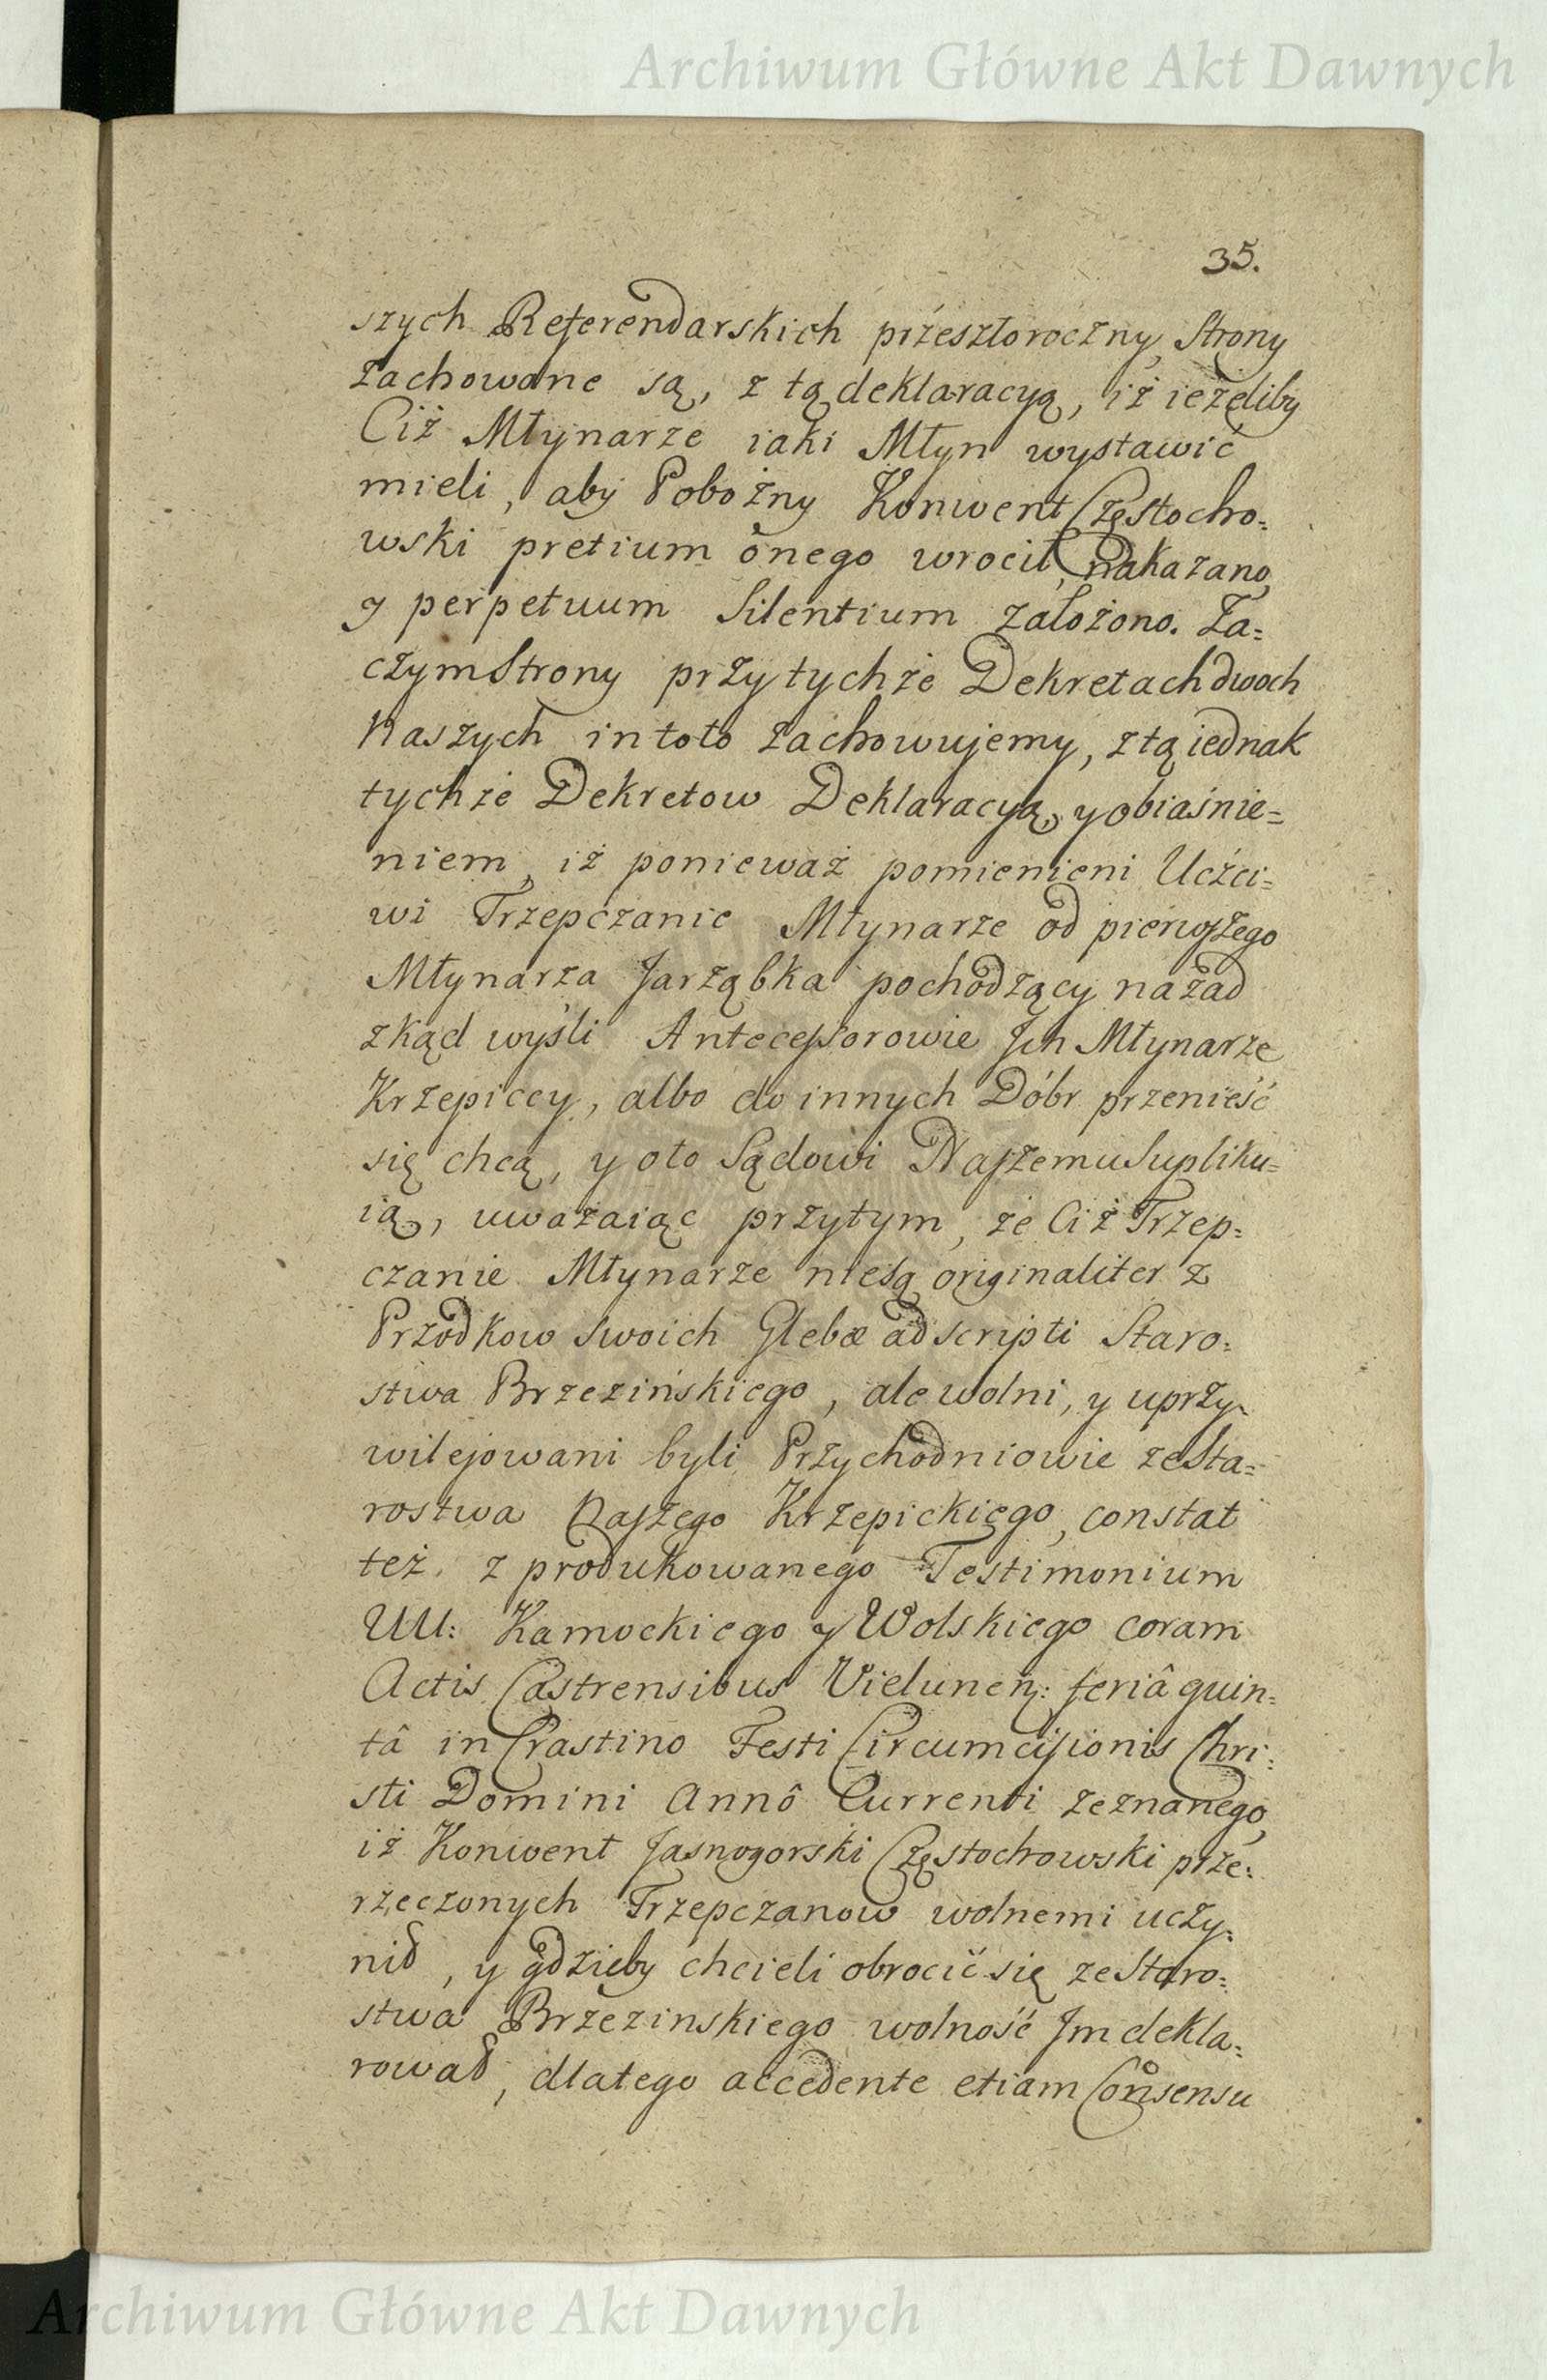 Archiwum Główne Akt Dawnych
35.
szych Referendarskich przeszłoroczny, Strony
zachowane są, z tą deklaracyą, iż ieżeliby
Ciż Młynarze iaki Młyn wystawić
mieli, aby Pobożny Konwent Częstocho=
wski pretium onego wrocił, nakazano,
y perpetuum Silentium założono. Za=
czym Strony przy tychże Dekretach dwoch
Naszych in toto zachowujemy, z tą iednak
tychże Dekretow Deklaracyą, y obiaśnie=
niem, iż ponieważ pomienieni Uczci=
wi Trzepczanie Młynarze od pierwszego
Młynarza Jarząbka pochodzący nazad
zkąd wyśli Antecessorowie Ich Młynarze
Krzepiccy, albo do innych Dóbr przenieść
się chcą, y oto Sądowi Naszemu Supliku=
ią, uważaiąc przytym, że Ciż Trzep=
czanie Młynarze niesą originaliter z
Przodkow swoich Glebæ adscripti Staro=
stwa Brzezińskiego, ale wolni, y uprzy=
wilejowani byli Przychodniowie ze Sta=
rostwa Naszego Krzepickiego, constat
też z produkowanego Testimonium
UU: Kamockiego y Wolskiego coram
Actis Castrensibus Vielunen: feriâ quin=
tâ in Crastino Festi Circumcisionis Chri=
sti Domini Annô Currenti zeznanego,
iż Konwent Jasnogorski Częstochowski prze=
rzeczonych Trzepczanow wolnemi uczy=
nił, y gdzieby chcieli obrocić się ze Staro=
stwa Brzezinskiego wolność Im dekla=
rował, dlatego accedente etiam Consensu
Archiwum Główne Akt Dawnych